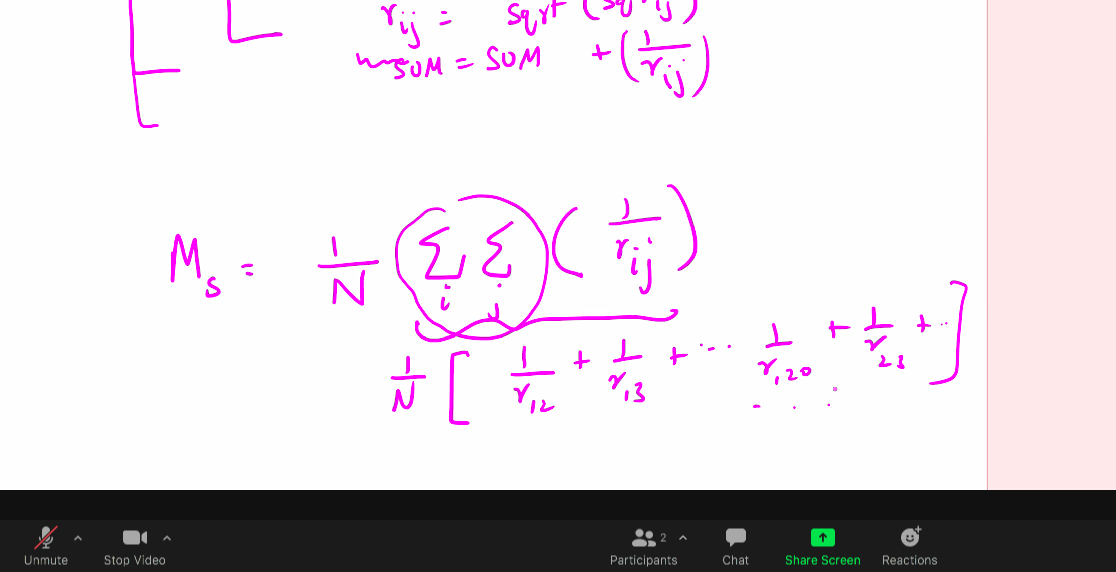 r_ij = sqrt (sq r_ij)
SUM = SUM + (1/r_ij)
M_s = 1/N Σ_i Σ_j (1/r_ij)
1/N [ 1/r_12 + 1/r_13 + ... 1/r_1,20 + 1/r_23 + .. ]
. . .
2
Unmute Stop Video Participants Chat Share Screen Reactions